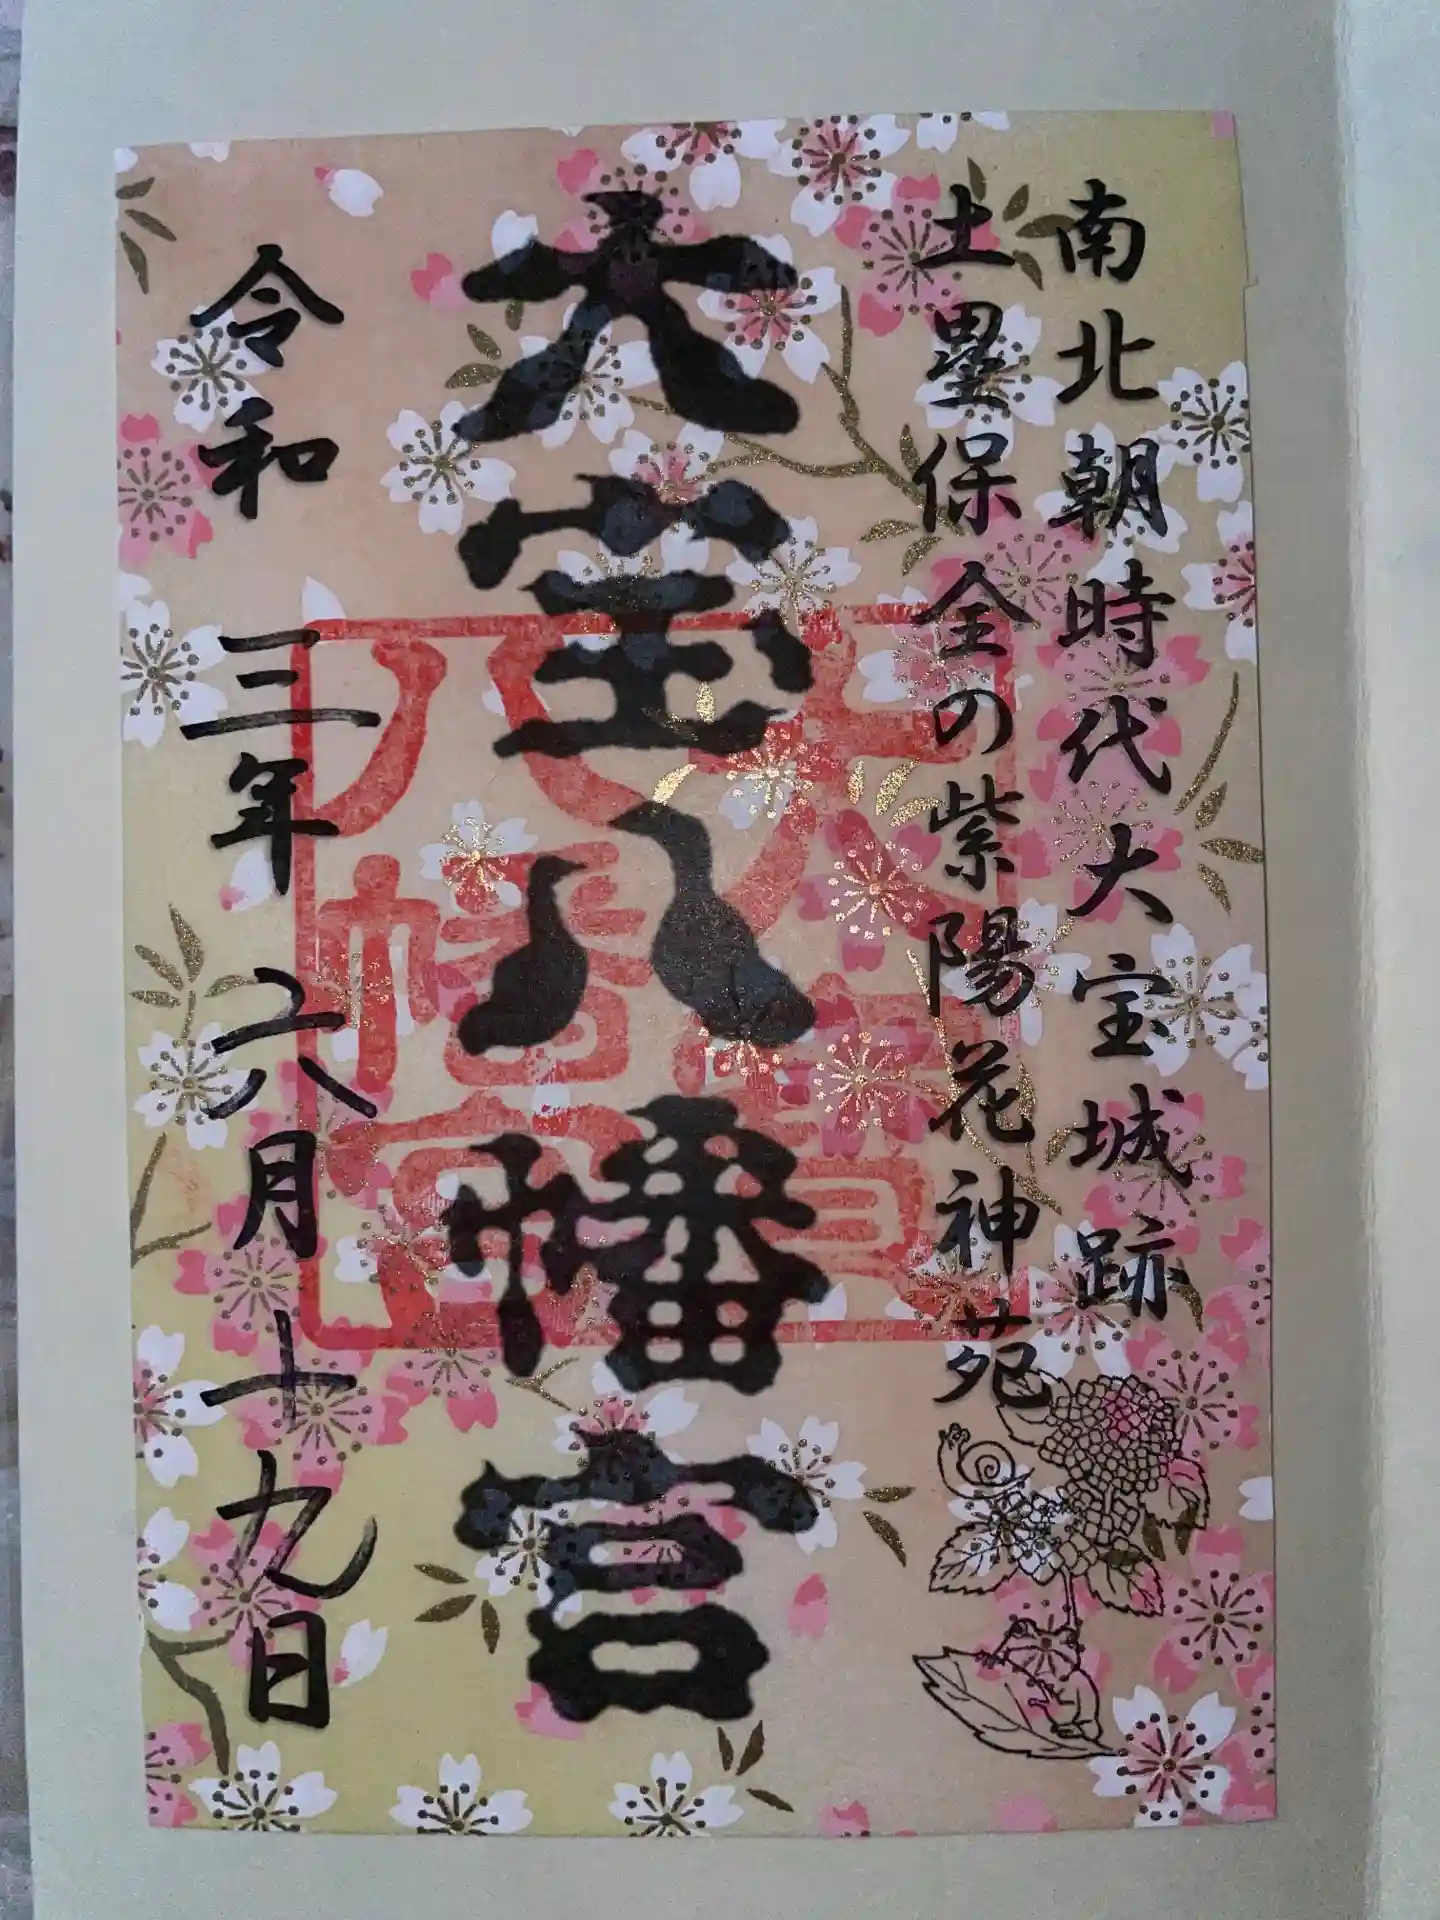 南北朝時代大宝城跡
土塁保全の紫陽花神苑
大宝八幡宮
大寳
八幡宮
令和三年六月十九日